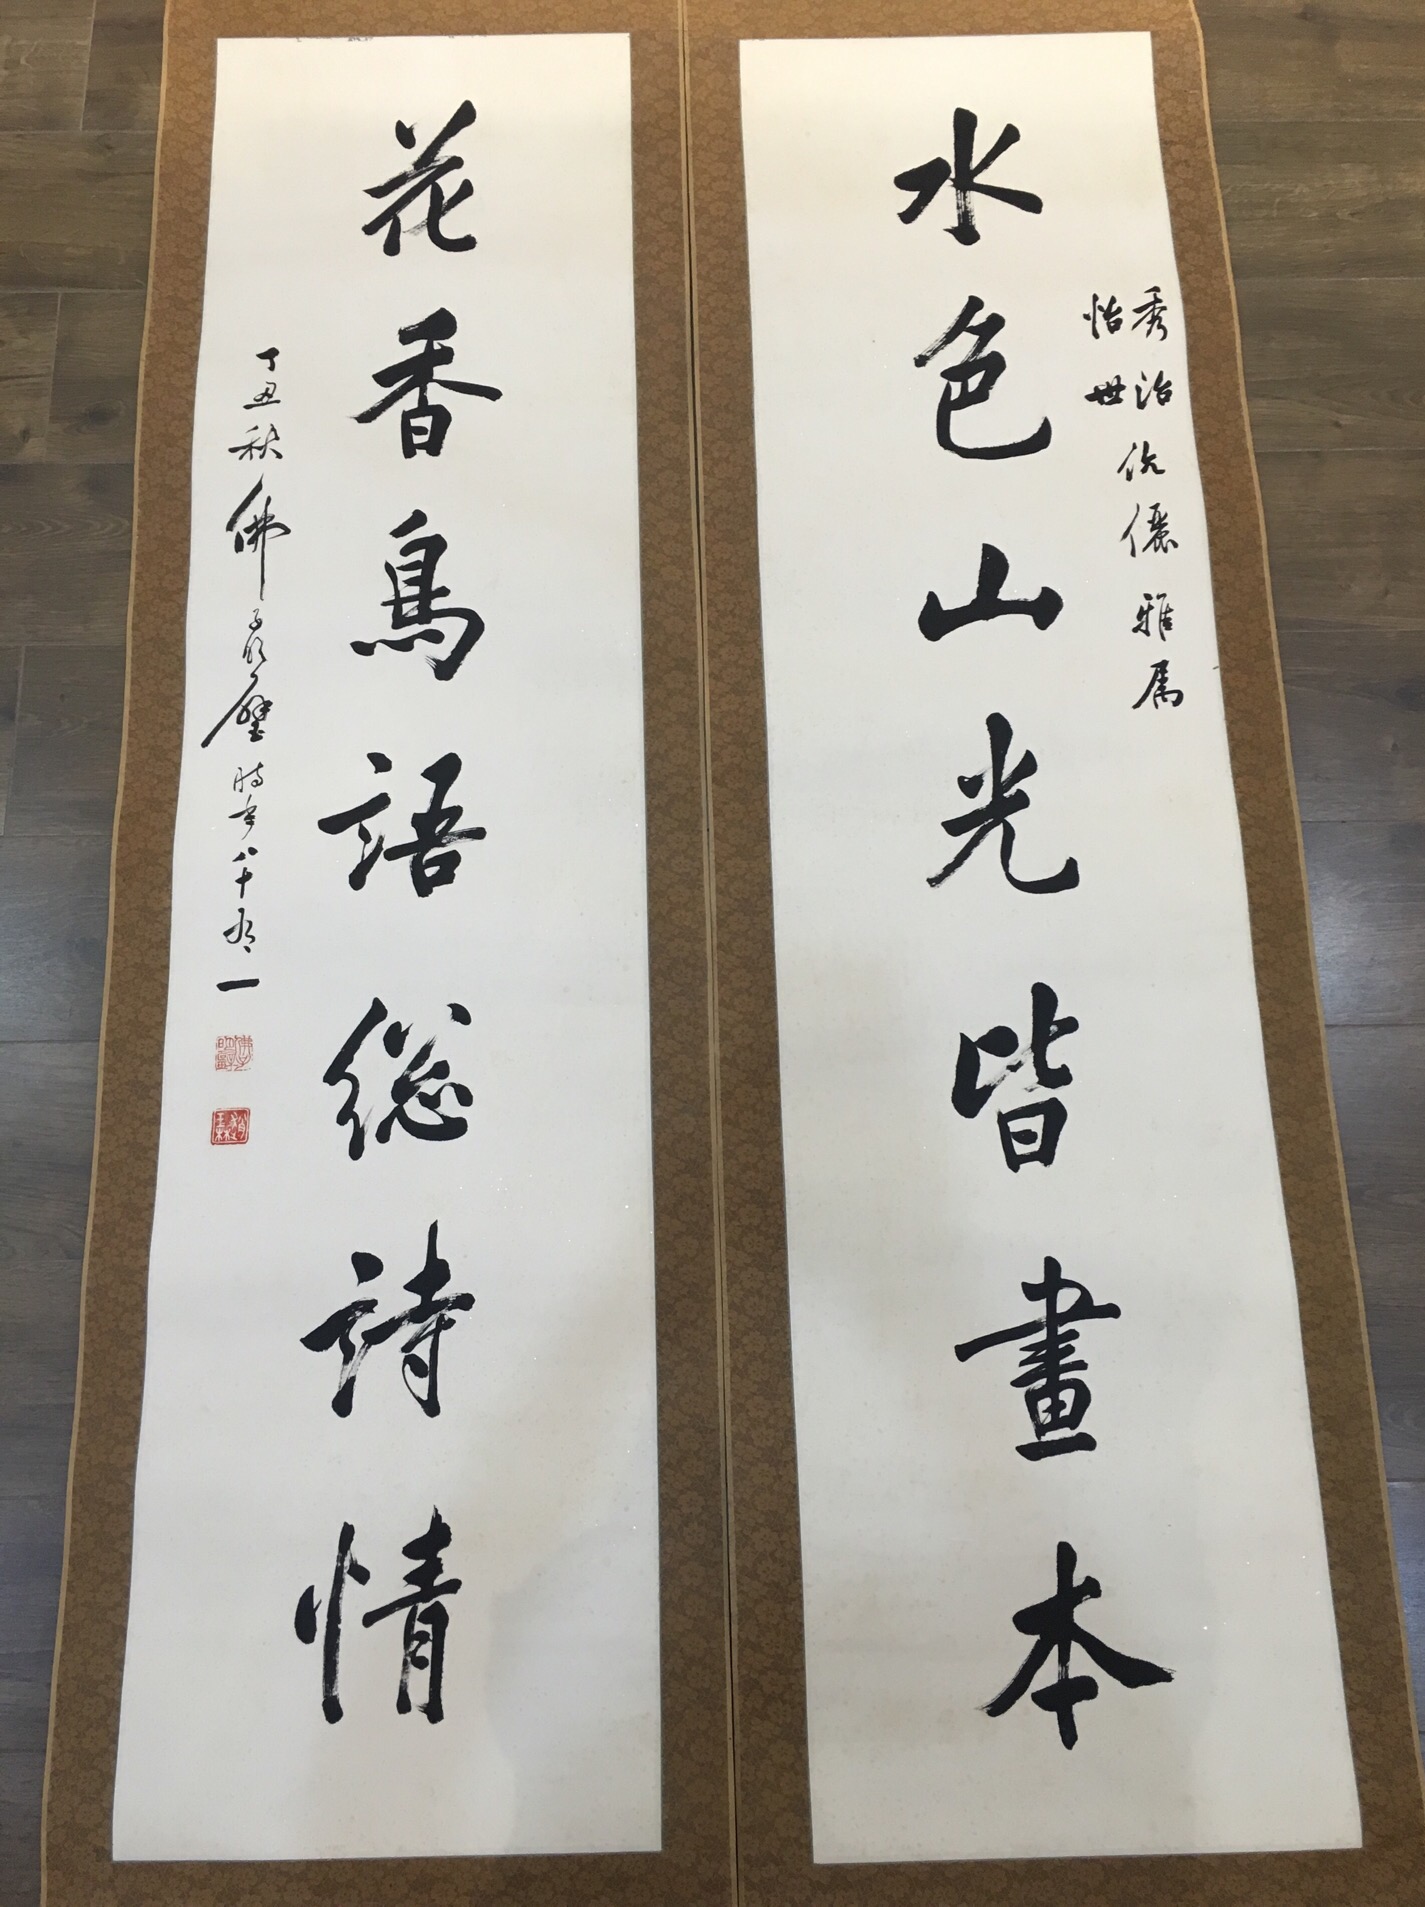 水色山光皆畫本
秀治
怡世
伉儷雅属
花香鳥語総詩情
丁丑秋佛子明璧時年八十有一